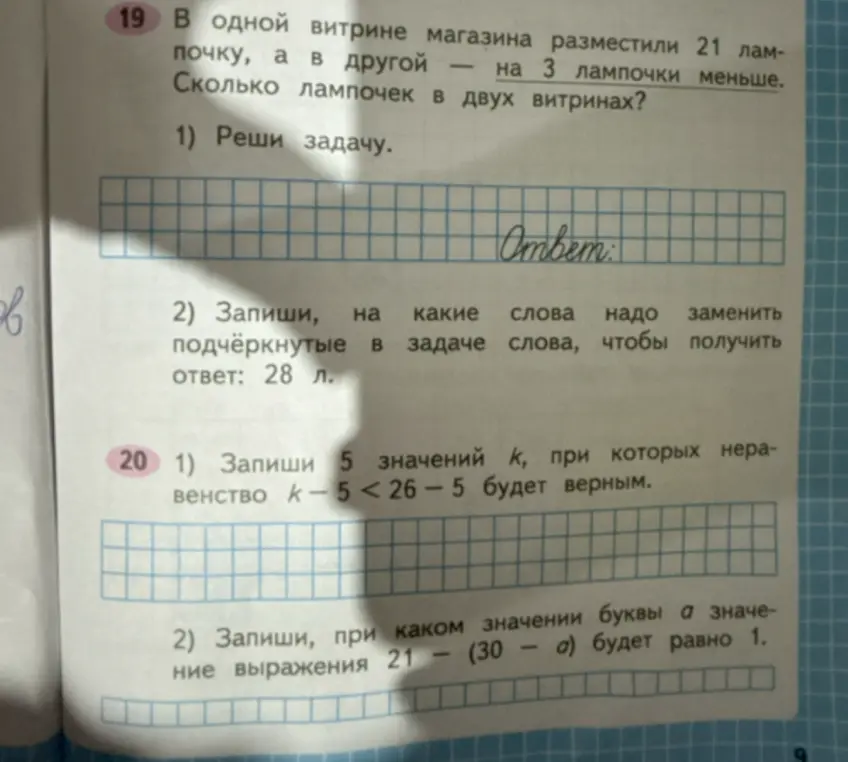 19 В одной витрине магазина разместили 21 лам-
почку, а в другой — на 3 лампочки меньше.
Сколько лампочек в двух витринах?
1) Реши задачу.
Ответ:
2) Запиши, на какие слова надо заменить
подчёркнутые в задаче слова, чтобы получить
ответ: 28 л.
20 1) Запиши 5 значений k, при которых нера-
венство k – 5 < 26 – 5 будет верным.
2) Запиши, при каком значении буквы a значе-
ние выражения 21 – (30 – a) будет равно 1.
9